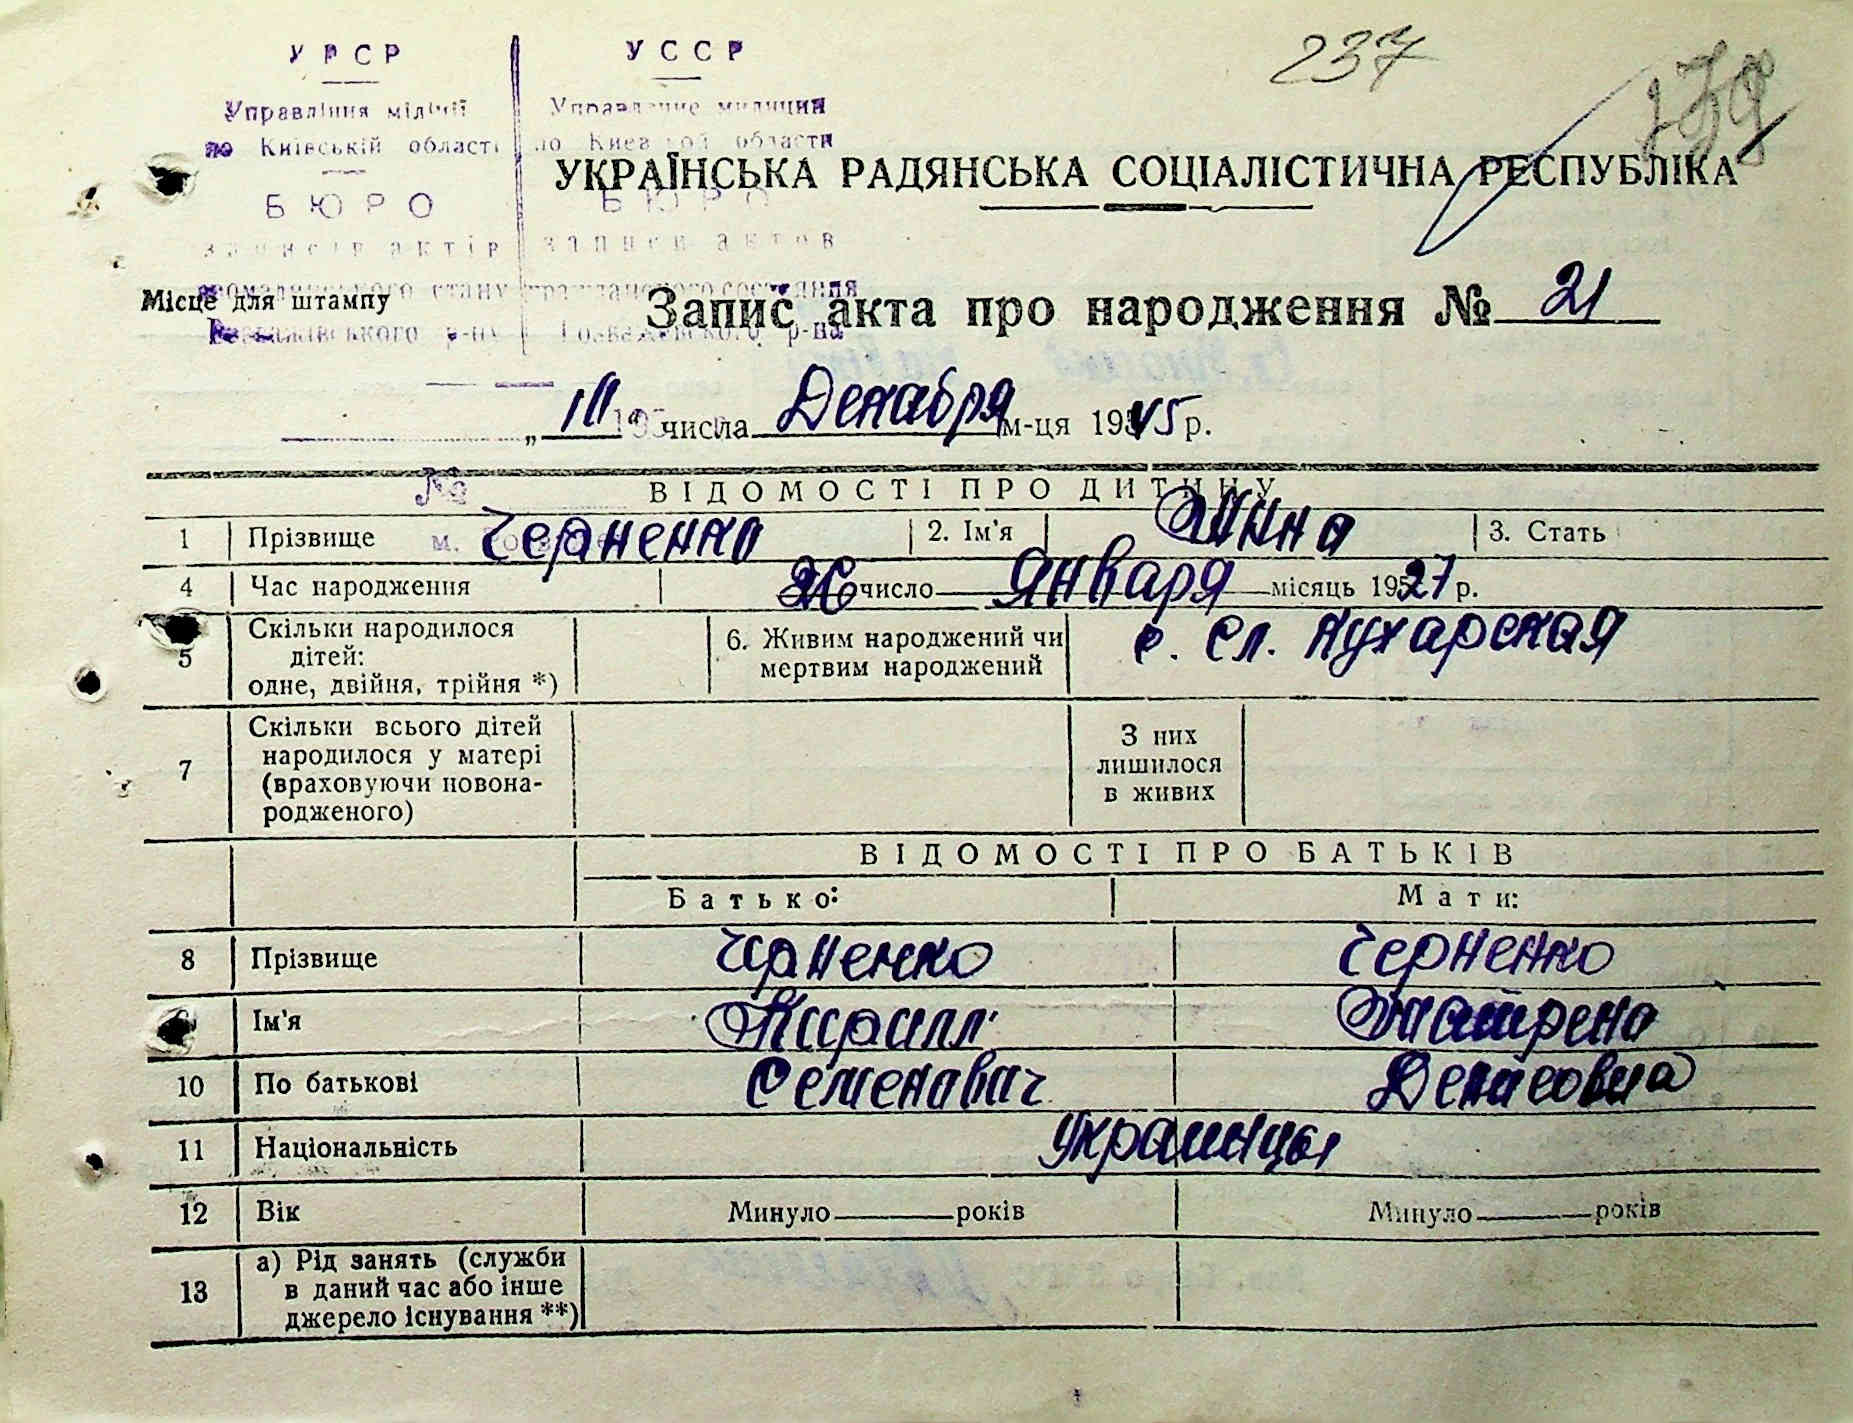 237
УРСР
УССР
Управління міліції
Управление милиции
по Київській області
по Киевской области
УКРАЇНСЬКА РАДЯНСЬКА СОЦІАЛІСТИЧНА РЕСПУБЛІКА
БЮРО
БЮРО
записів актів
записи актов
громадянського стану
гражданского состояния
Місце для штампу
Розважівського р-ну
Розважевского р-на
Запис акта про народження № 21
„ числа Декабря м-ця 1945 р.
№
ВІДОМОСТІ ПРО ДИТИНУ
1 Прізвище Черненко 2. Ім'я 3. Стать
4 Час народження 26 число Января місяць 1927 р.
5 Скільки народилося дітей: одне, двійня, трійня *)
6. Живим народжений чи мертвим народжений
с. Сл. Кухарская
7 Скільки всього дітей народилося у матері (враховуючи новонародженого)
З них лишилося в живих
ВІДОМОСТІ ПРО БАТЬКІВ
Батько: Мати:
8 Прізвище Черненко Черненко
Ім'я Кирилл Матрена
10 По батькові Семенович Денисовна
11 Національність Украинцы
12 Вік Минуло років Минуло років
13 а) Рід занять (служби в даний час або інше джерело існування **)